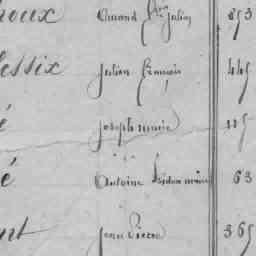 houx Amand Jean Julien 853
essix Julien François 445
é Joseph marie 115
é Antoine Isidore marie 63
nt Jean Pierre 365